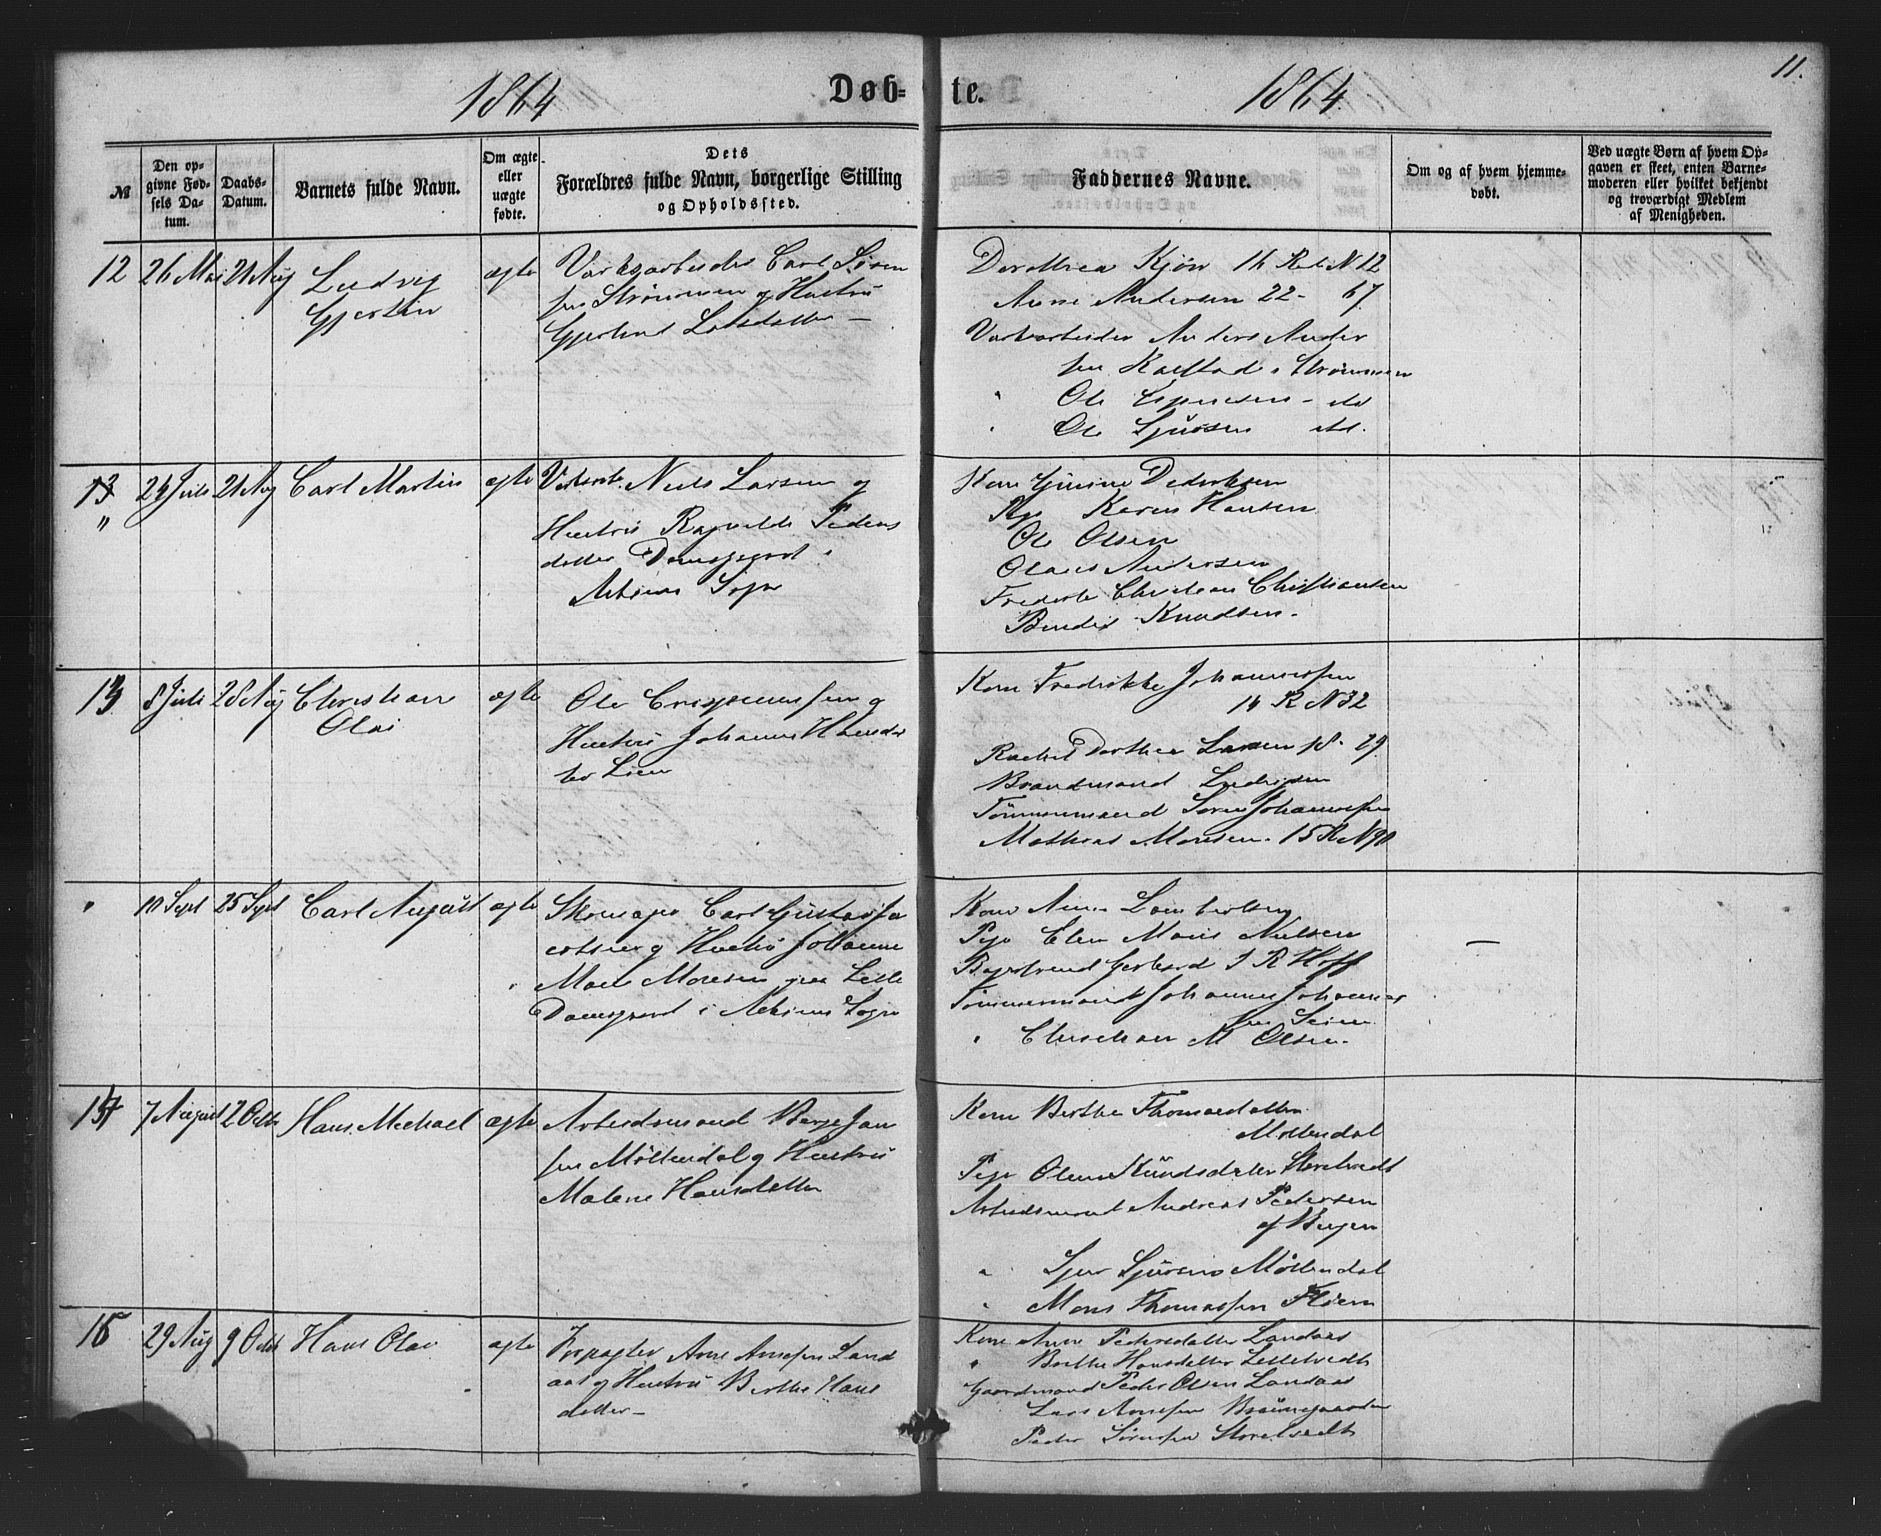 11.
1864 Døb- te. 1864
№
Den opgivne Fødsels Datum.
Daabs-Datum.
Barnets fulde Navn.
Om ægte eller uægte fødte.
Dets Forældres fulde Navn, borgerlige Stilling og Opholdssted.
Faddernes Navne.
Om og af hvem hjemmedøbt.
Ved uægte Børn af hvem Opgaven er skeet, enten Barnemoderen eller hvilket bekjendt og troværdigt Medlem af Menigheden.
12 26 Mai 21 Aug Ludvig
Gjertin
ægte
Carl Søren
sen Strømmen og Hustru
Gjertrud Larsdatter
Dorothea Kjör 16 R N 12
Anne Andersen 22 - 67
Anders Ander
sen Strømmen
Ole Espensen - do
Ole Sjursen do.
13 24 Juli 21 Aug Carl Martin ægte
"
Niels Larsen og
Hustru Ragnilde Peders
datter Damsgaard i
Sogn
Kone Gurine Dideriksen
Pige Karen Hansen
Ole Olsen
Olaus Andersen
Frederik Christian Christiansen
Knudsen
13 8 Juli 28 Aug Christian
Olai
ægte
Ole og
Hustru Johanne Hansdat
ter Lien
Kone Fredrikke Johannessen
14 R N 32
Rachel Dorthea Larsen 18 - 29
Brandmand Ludvigsen
Tømmermand Søren Johannessen
Mathias Monsen. 15 R N 90
" 10 Sept 25 Sept Carl August ægte
Skomager Carl Gustav Ja
cobsen og Hustru Johanne
Marie Monsen paa Lille
Damsgaard i Sogn
Kone Anne Lambertsen
Pige Elen Marie Nielsen
Gerhard I R Hoff
Tømmermand Johannes Johannes
sen
" Christian M Olsen.
—
14 7 August 2 Octb Hans Michael ægte
Arbeidsmand Børge Jan
sen Møllendal og Hustru
Malene Hansdatter
Kone Berthe Thomasdatter
Møllendal
Pige Oline Knudsdatter Storetvedt
Arbeidsmand Andreas Pedersen
af Bergen
" Sjur Sjursens Møllendal
" Mons Thomassen
15 29 Aug 9 Octb Hans Olai ægte
Forpagter Arne Arnesen Land
aas og Hustru Berthe Hans
datter
Kone Anne Pedersdatter Landaas
" Berthe Hansdatter Lilletvedt
Gaardmand Peder Olsen Landaas
Lars Arnesen
Peder Sørensen Storetvedt